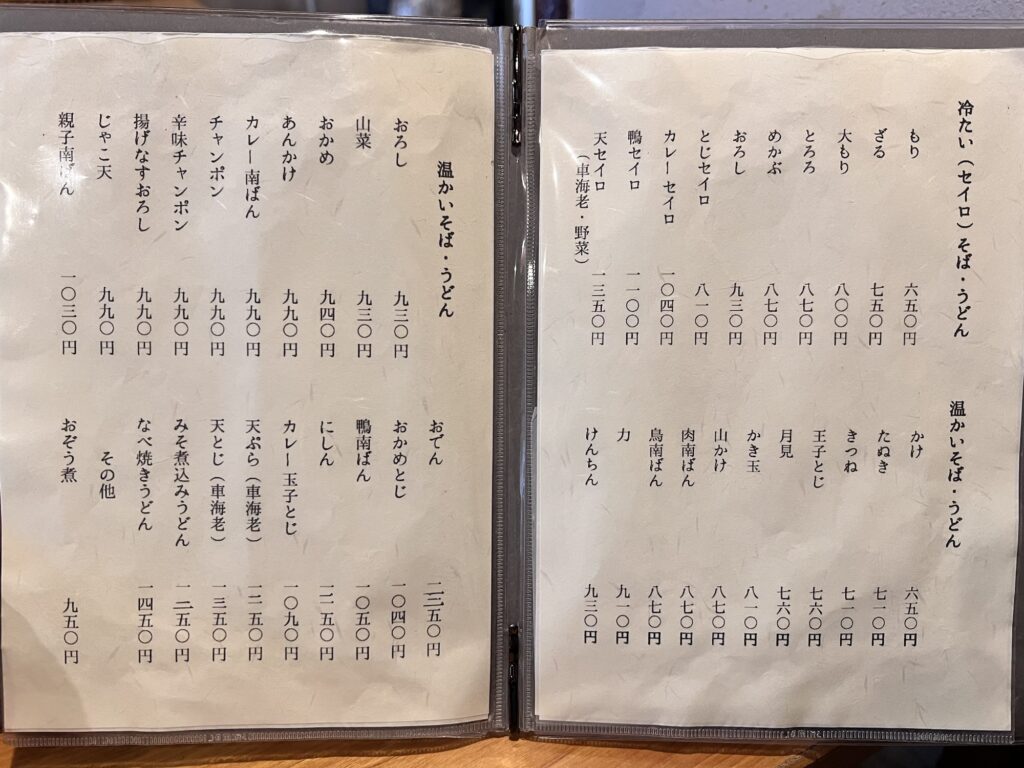 冷たい（セイロ）そば・うどん
もり 六五〇円
ざる 七五〇円
大もり 八〇〇円
とろろ 八七〇円
めかぶ 八七〇円
おろし 九三〇円
とじセイロ 八一〇円
カレーセイロ 一〇四〇円
鴨セイロ 一一〇〇円
天セイロ 一三五〇円
（車海老・野菜）
温かいそば・うどん
かけ 六五〇円
たぬき 七一〇円
きつね 七一〇円
玉子とじ 七六〇円
月見 七六〇円
かき玉 八一〇円
山かけ 八七〇円
肉南ばん 八七〇円
鳥南ばん 八七〇円
力 九一〇円
けんちん 九三〇円
温かいそば・うどん
おろし 九三〇円
山菜 九三〇円
おかめ 九四〇円
あんかけ 九九〇円
カレー南ばん 九九〇円
チャンポン 九九〇円
辛味チャンポン 九九〇円
揚げなすおろし 九九〇円
じゃこ天 九九〇円
親子南ばん 一〇三〇円
おでん
おかめとじ 一〇四〇円
鴨南ばん 一〇五〇円
にしん 一一五〇円
カレー玉子とじ 一〇九〇円
天ぷら（車海老） 一二五〇円
天とじ（車海老） 一三五〇円
みそ煮込みうどん 一二五〇円
なべ焼きうどん 一四五〇円
その他
おぞう煮 九五〇円